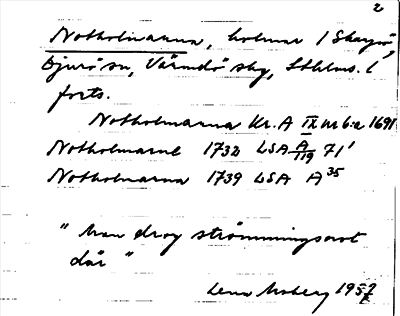 2
Notholmarna, holmar i Skargö,
Djurö sn, Värmdö skg, Sthlms. l
forts.
Notholmarna Kr. A IX nr 6:a 1691
Notholmarne 1732 LSA A/119 71'
Notholmarna 1739 LSA A 35
"Man drog strömmingsnot
där"
Lena Moberg 1957